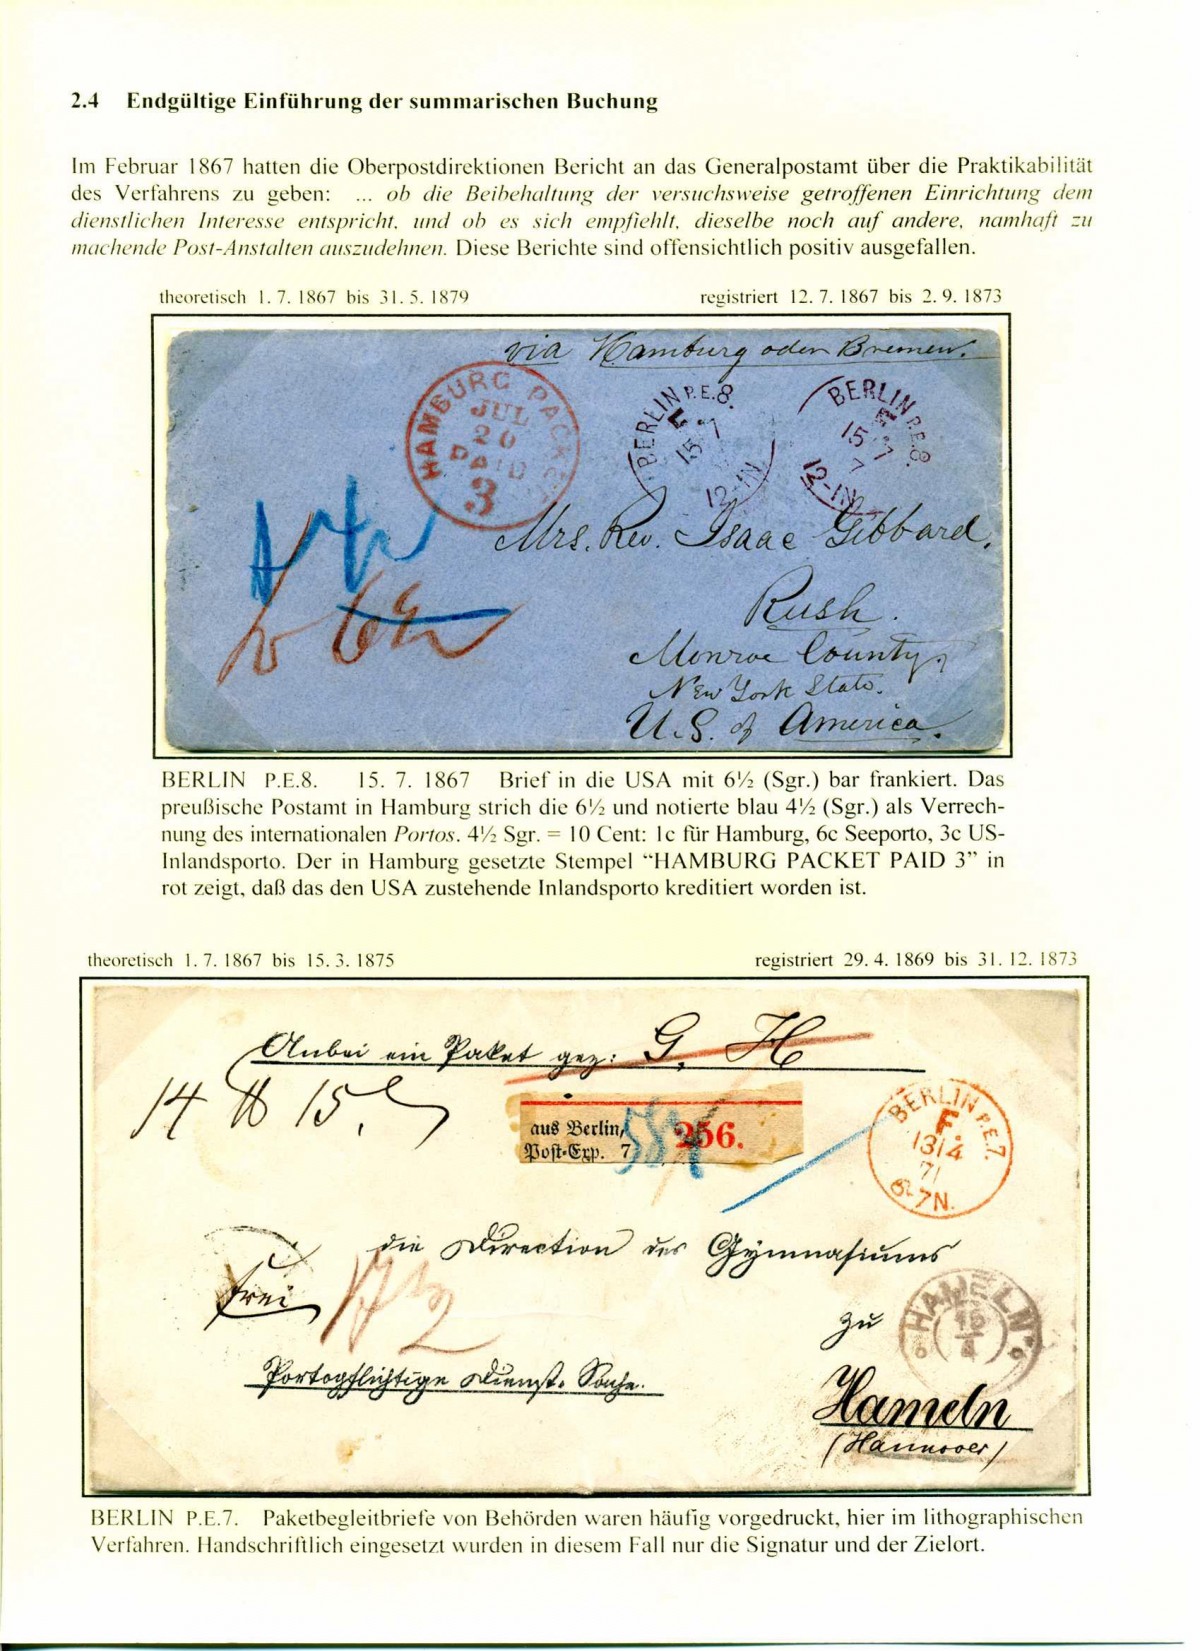 2.4 Endgültige Einführung der summarischen Buchung
Im Februar 1867 hatten die Oberpostdirektionen Bericht an das Generalpostamt über die Praktikabilität
des Verfahrens zu geben: ... ob die Beibehaltung der versuchsweise getroffenen Einrichtung dem
dienstlichen Interesse entspricht, und ob es sich empfiehlt, dieselbe noch auf andere, namhaft zu
machende Post-Anstalten auszudehnen. Diese Berichte sind offensichtlich positiv ausgefallen.
theoretisch 1. 7. 1867 bis 31. 5. 1879
registriert 12. 7. 1867 bis 2. 9. 1873
via Hamburg oder Bremen.
HAMBURG PACKET
JUL
20
PAID
3
BERLIN P.E.8.
15 7
12-1N
BERLIN P.E.8.
15 7
7
12-1N
Mrs. Rev. Isaac Gibbard.
Rush.
Monroe County,
New York State.
U.S. of America.
BERLIN P.E.8. 15. 7. 1867 Brief in die USA mit 6½ (Sgr.) bar frankiert. Das
preußische Postamt in Hamburg strich die 6½ und notierte blau 4½ (Sgr.) als Verrech-
nung des internationalen Portos. 4½ Sgr. = 10 Cent: 1c für Hamburg, 6c Seeporto, 3c US-
Inlandsporto. Der in Hamburg gesetzte Stempel “HAMBURG PACKET PAID 3” in
rot zeigt, daß das den USA zustehende Inlandsporto kreditiert worden ist.
theoretisch 1. 7. 1867 bis 15. 3. 1875
registriert 29. 4. 1869 bis 31. 12. 1873
Anbei ein Paket gez: G. H
14 ℔ 15.
aus Berlin,
Post-Exp. 7
256.
BERLIN P.E.7.
F.
13/4
71
6-7N.
die Direction des Gymnasiums
frei
zu
HAMELN
Portopflichtige Dienst-Sache.
Hameln
(Hannover)
BERLIN P.E.7. Paketbegleitbriefe von Behörden waren häufig vorgedruckt, hier im lithographischen
Verfahren. Handschriftlich eingesetzt wurden in diesem Fall nur die Signatur und der Zielort.